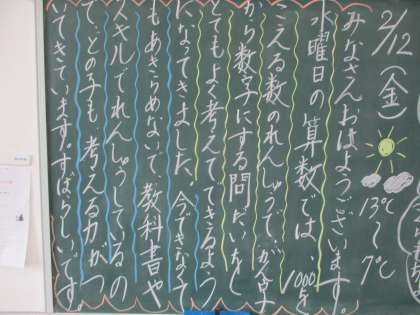 2/12
(金)
13℃
〜
7℃
みなさんおはようございます。
水曜日の算数では、1000を
こえる数のれんしゅうで、がん字
から数字にする問だいなど
とてもよく考えてできるよう
になってきました。今できなくて
もあきらめないで、教科書や
スキルでれんしゅうしているの
で、どの子も考える力がつ
いてきています。すばらしいです。